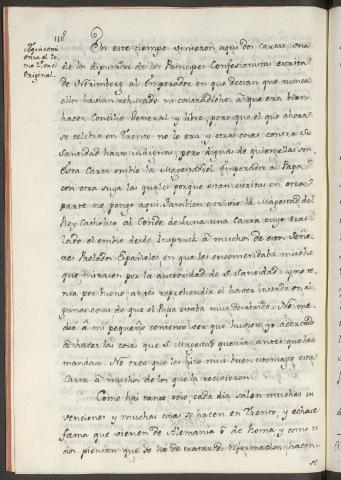 118
Aquacomi
enza el to
mo 2º. en el
Original.
En este tiempo vinieron aqui dos cartas, una
de los diputados de los Principes Confesionistas escrita
de Nurimberg al Emperador en que decian que nunca
ellos havian rehusado ni contradicho, a que era bien
hacer Concilio General y libre, pero que el que ahora
se celebra en Trento no lo era y otras cosas contra Su
Santidad harto indignas, pero dignas de quien ellas son.
Esta Carta embio la Magestad del Emperador al Papa
con otra suya las quales porque estan escritas en otra
parte no pongo aqui. Tambien escrivio la Magestad del
Rey Catholico al Conde de Luna una Carta cuyo tras
lado el embio desde Itspruch à muchos de estos Seño-
res Prelados Españoles, en que les encomendaba mucho
que mirasen por la autoridad de S. Santidad, y no te
nia por bueno, antes reprehendia el hacer instado en al
gunas cosas de que el Papa estaba muy desabrido. No me
dio à mi pequeño contento ver que huviese yo acertado
à hacer las cosas que S. Magestad queria antes que las
mandase. No creo que les hizo muy buen estomago esta
Carta à muchos de los que la recivieron.
Como hai tanto ocio, cada dia salen muchas in
venciones y muchas cosas se hacen en Trento, y echase
fama que vienen de Alemania ò de Roma, y como to
dos piensan que se ha de tratar de reformacion, hacen-
se